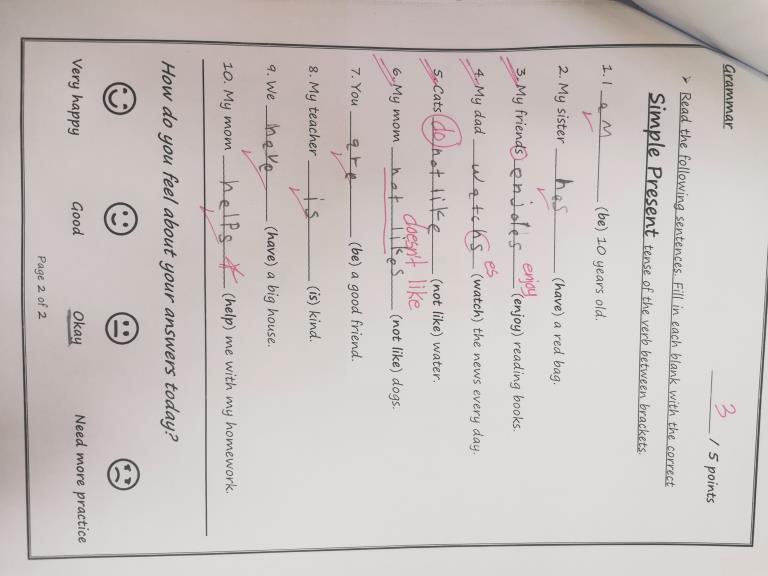 Grammar
3 / 5 points
➢ Read the following sentences. Fill in each blank with the correct
Simple Present tense of the verb between brackets.
1. I am (be) 10 years old.
2. My sister has (have) a red bag.
3. My friends enjoies enjoy (enjoy) reading books.
4. My dad watchs es (watch) the news every day.
5. Cats do not like (not like) water.
6. My mom not likes doesn't like (not like) dogs.
7. You are (be) a good friend.
8. My teacher is (is) kind.
9. We have (have) a big house.
10. My mom helps (help) me with my homework.
How do you feel about your answers today?
Very happy Good Okay Need more practice
Page 2 of 2